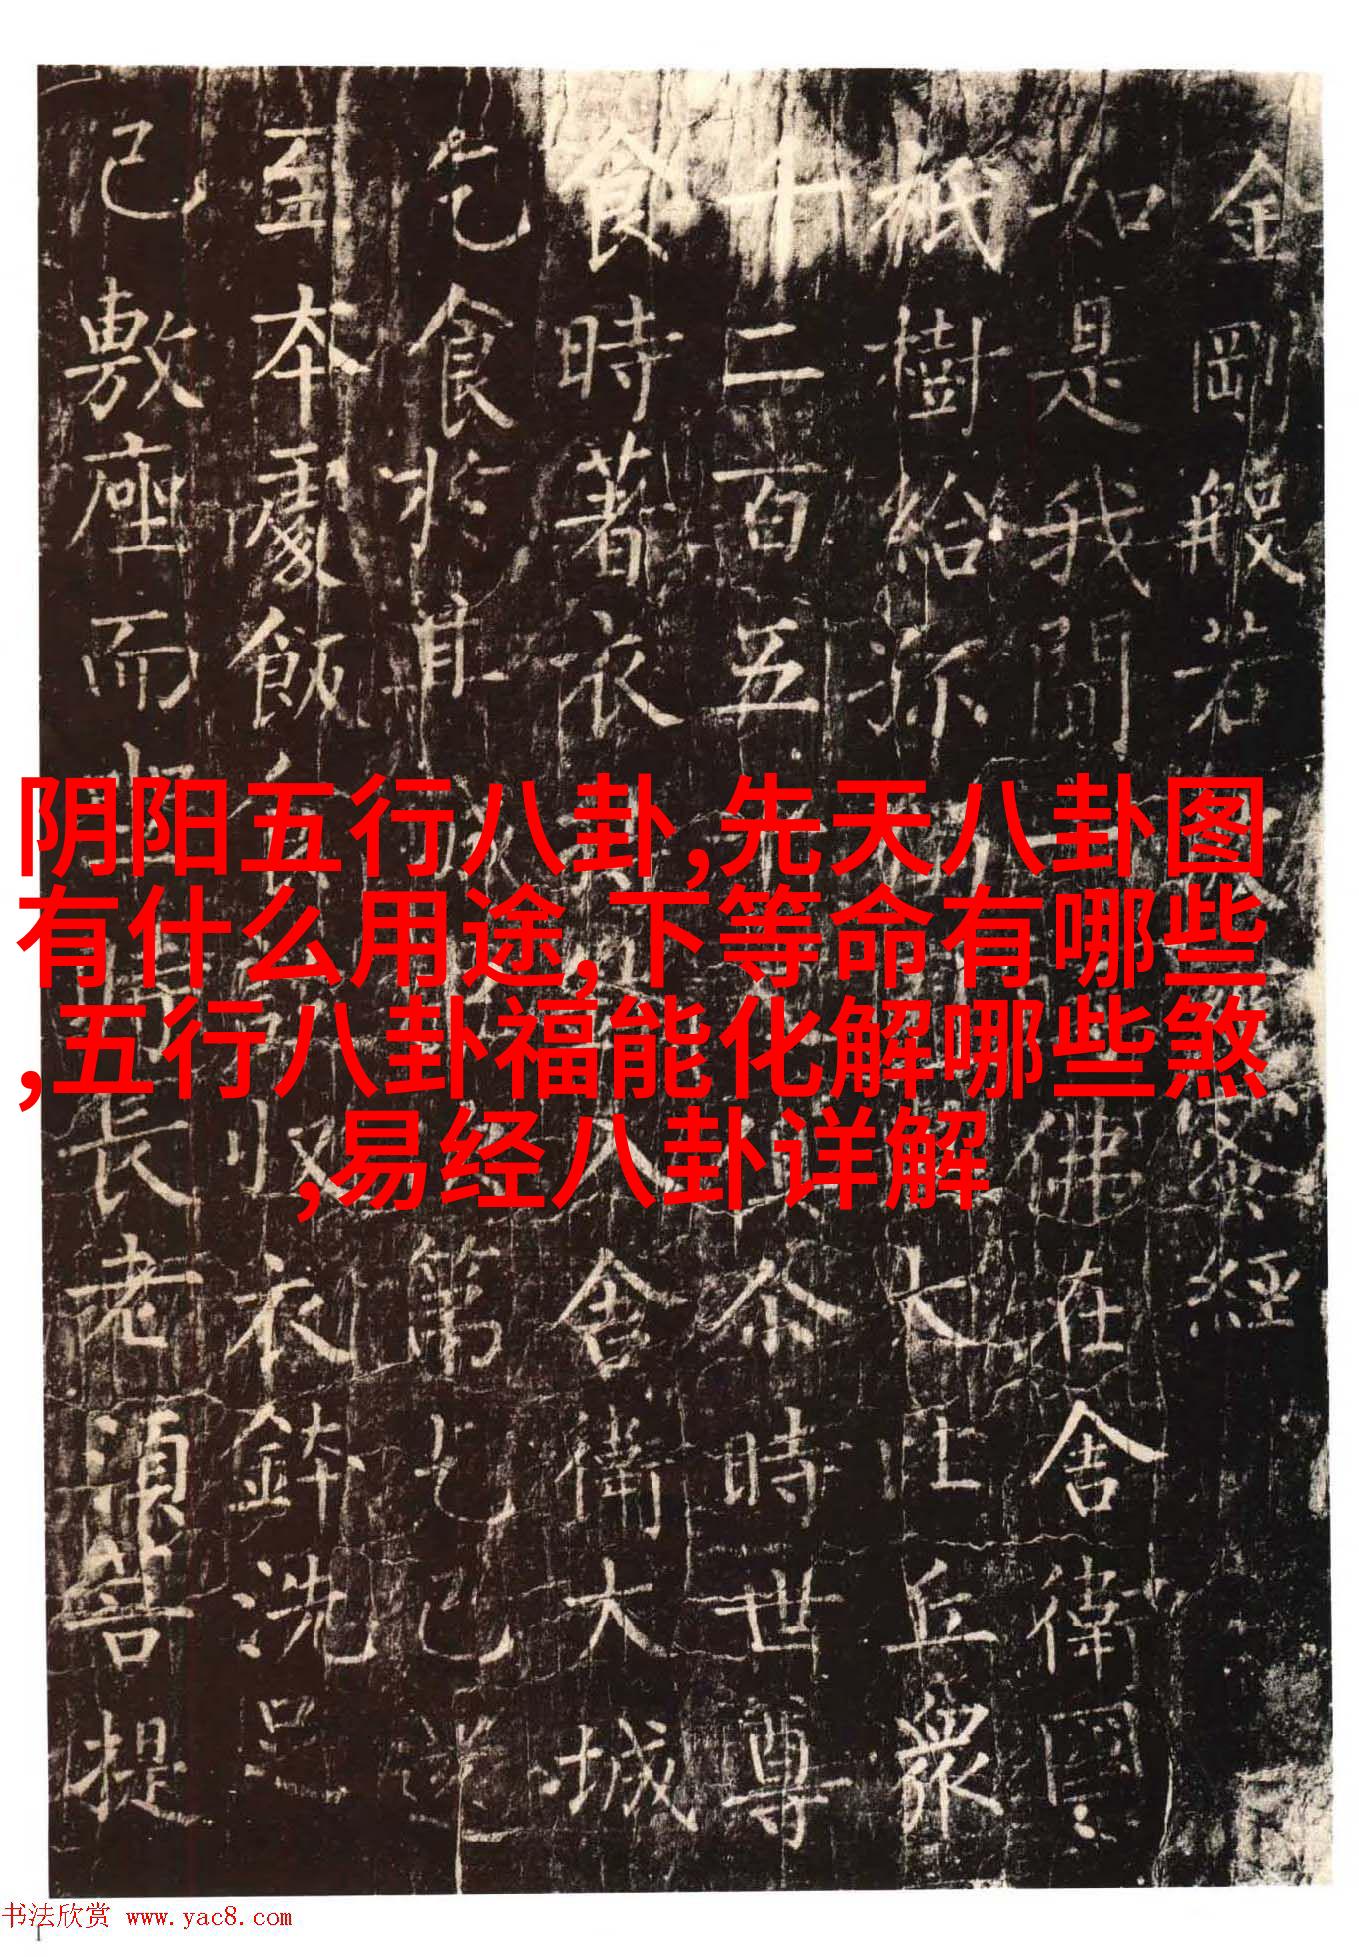 金剛般若蜜經
如是我聞一佛在舍衛國
祇樹給孤大比丘眾
十二百五尒時世尊
食時著衣入舍衛大城
乞食於其第乞已還
至本處飯收衣鉢洗足
已敷座而坐時長老須菩提
阴阳五行八卦,先天八卦图
有什么用途,下等命有哪些
,五行八卦福能化解哪些煞
,易经八卦详解
书法欣赏 www.yac8.com